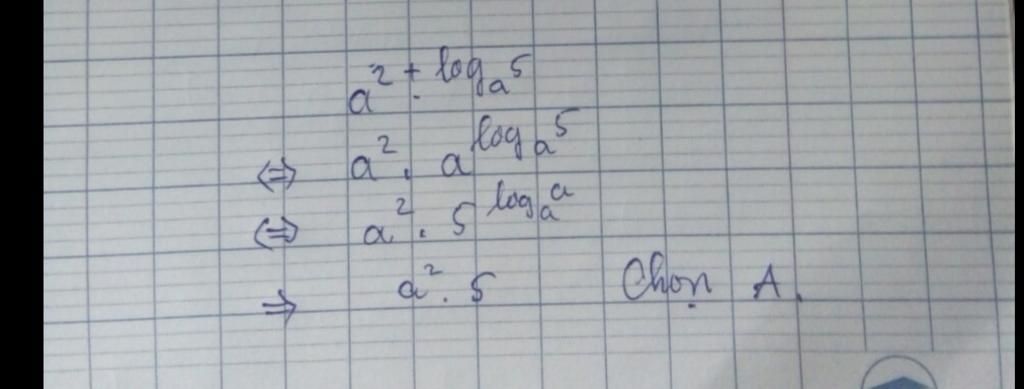 a^{2 + log_a 5}
⇔ a^2 . a^{log_a 5}
⇔ a^2 . 5^{log_a a}
⇒ a^2 . 5 Chọn A.